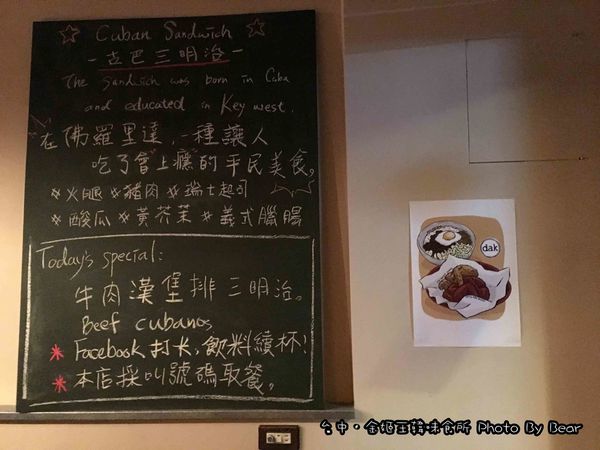 ☆ Cuban Sandwich ☆
-古巴三明治-
The sandwich was born in Cuba
and educated in Key west.
在佛羅里達,一種讓人
吃了會上癮的平民美食。
#火腿 #豬肉 #瑞士起司
#酸瓜 #黃芥茉 #義式臘腸
Today's special:
牛肉漢堡排三明治。
Beef cubanos
* Facebook 打卡,飲料續杯!
* 本店採叫號碼取餐。
dak
台中。金滋王韓味食所 Photo By Bear